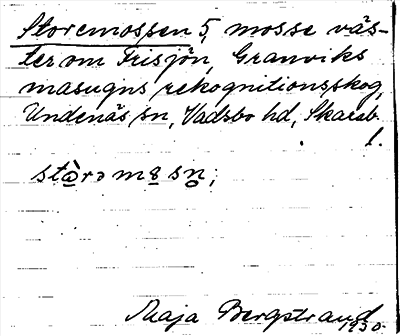 Storemossen 5, mosse väs-
ter om Frisjön, Granviks
masugns rekognitionsskog,
Undenäs sn, Vadsbo hd, Skarab.
l.
stɷ̀rə mɷsn̥,
Maja Bergstrand
1930.